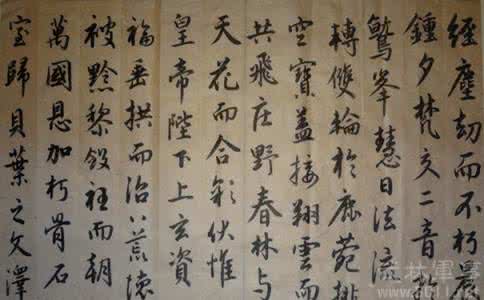 經塵劫而不朽晨
鍾夕梵交二音於
鷲峯慧日法流
轉雙輪於鹿菀排
空寶蓋接翔雲而
共飛庄野春林与
天花而合彩伏惟
皇帝陛下上玄資
福垂拱而治八荒德
被黔黎斂衽而朝
萬國恩加朽骨石
室歸貝葉之文澤